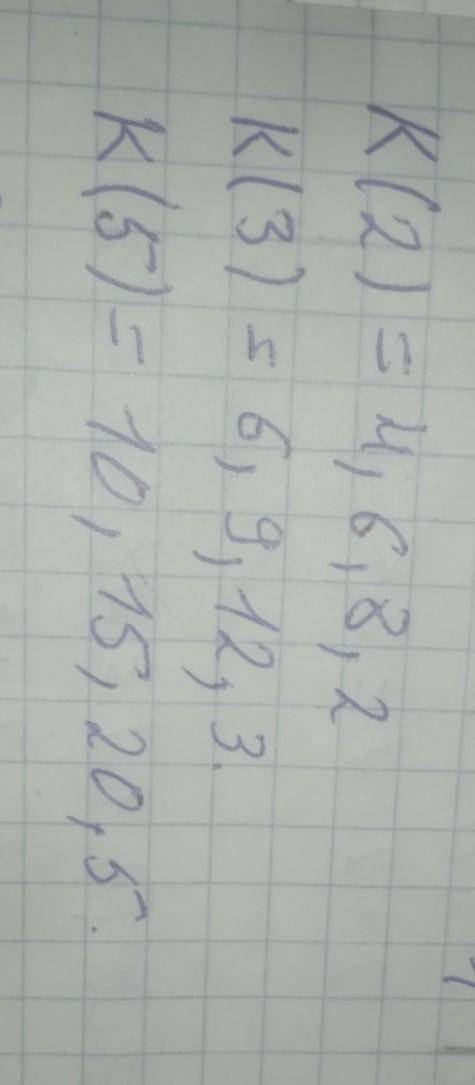 К(2) = 4, 6, 8, 2
К(3) = 6, 9, 12, 3.
К(5) = 10, 15, 20, 5.